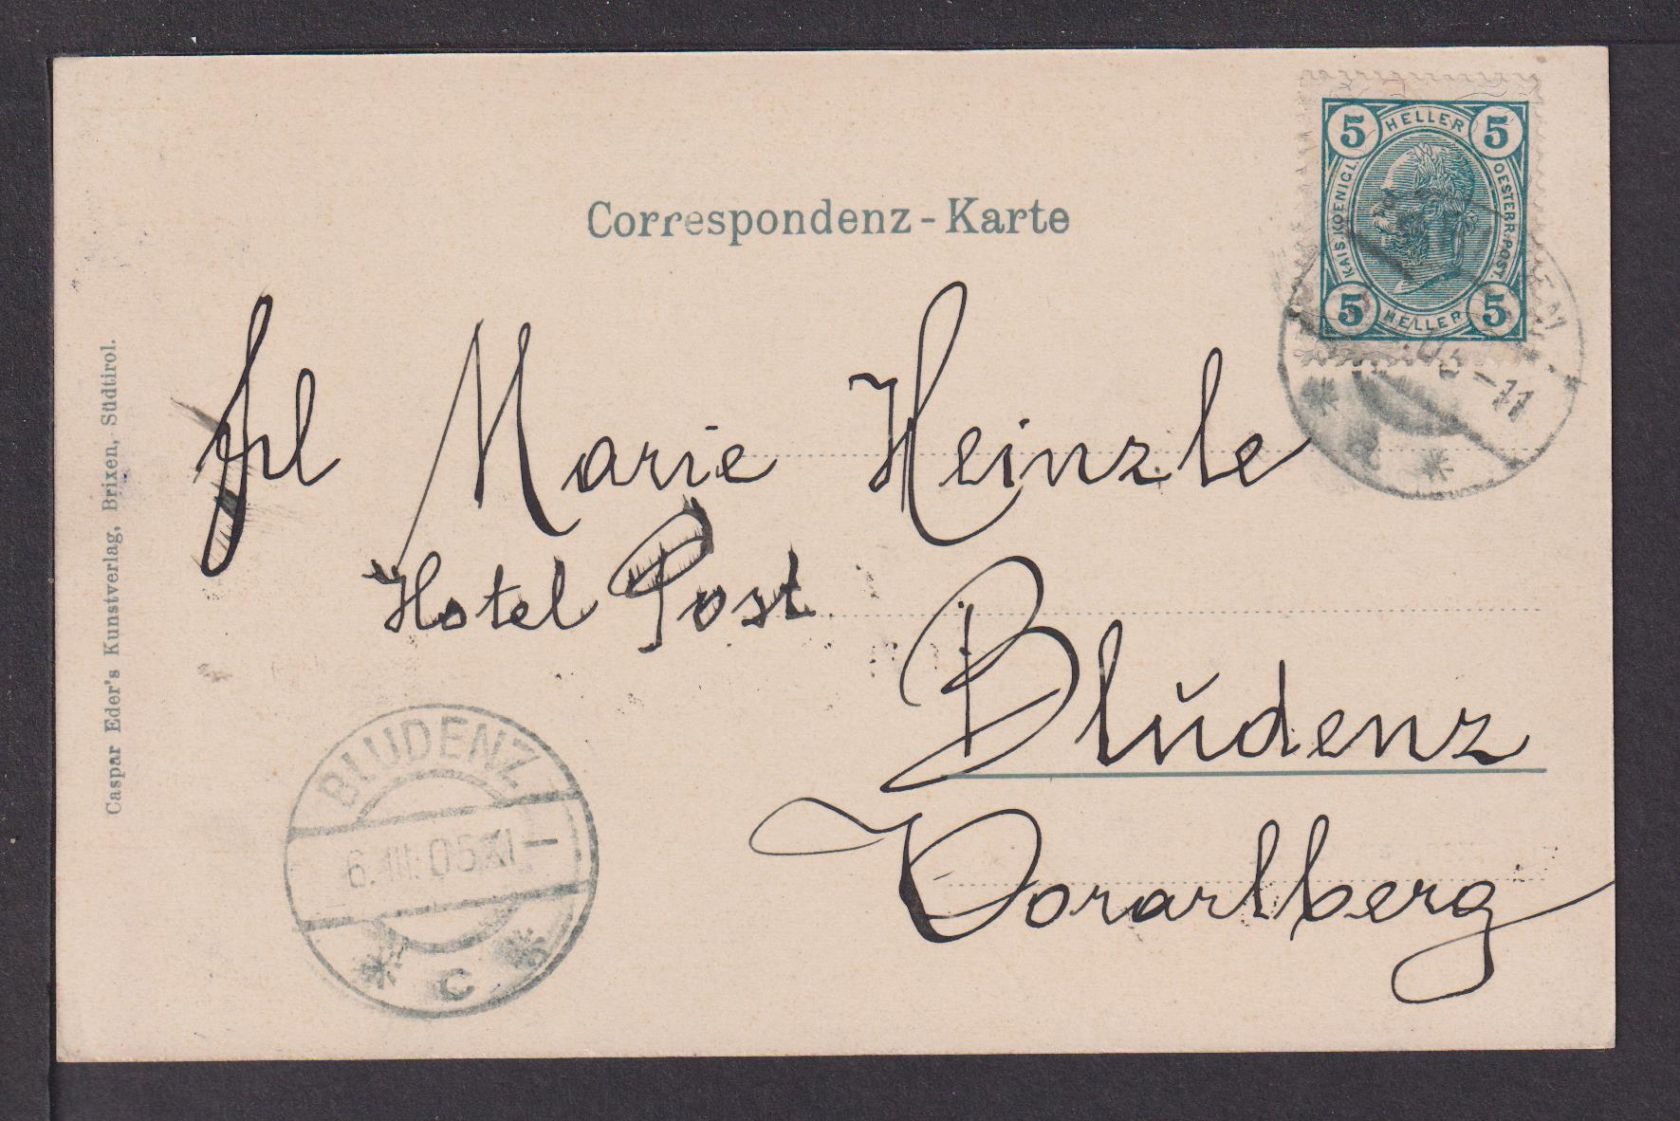 Correspondenz-Karte
5 HELLER 5
KAIS. KOENIGL. OESTERR. POST.
5 HELLER 5
-11
Frl Marie Heinzle
Hotel Post
Blŭdenz
Vorarlberg
BLUDENZ
6.III.05 XI-
C
Caspar Eder's Kunstverlag, Brixen, Südtirol.